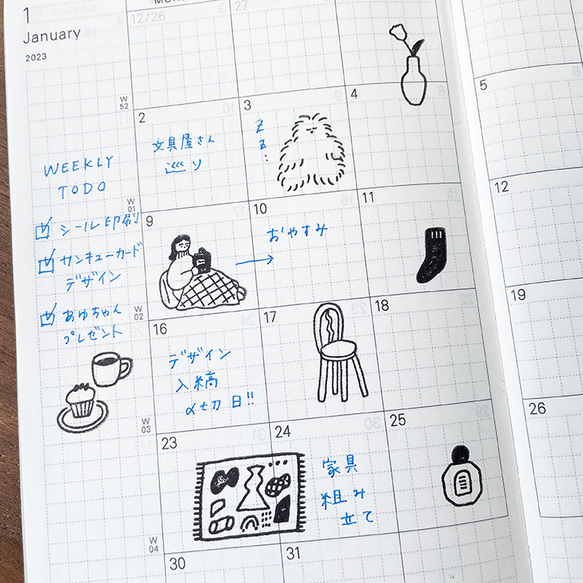 1
January
2023
12/26
W
52
2
3
4
5
文具屋さん
巡り
Z
Z
WEEKLY
TODO
シール印刷
サンキューカード
デザイン
あゆちゃん
プレゼント
W
01
9
10
11
12
おやすみ
W
02
16
17
18
19
デザイン
入稿
〆切日!!
W
03
23
24
25
26
家具
組み
立て
W
04
30
31